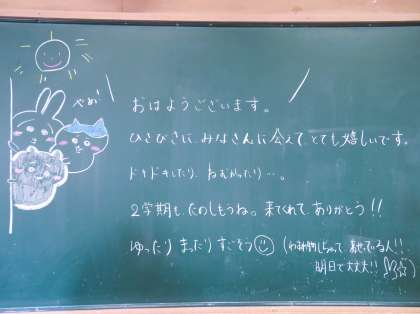 おはようございます。
ひさびさに、みなさんに会えて、とても嬉しいです。
ドキドキしたり、ねむかったり…。
2学期も、たのしもうね。来てくれて、ありがとう!!
ゆったり まったり すごそう (わすれ物しちゃって 焦っている人!!
明日で大丈夫!! )